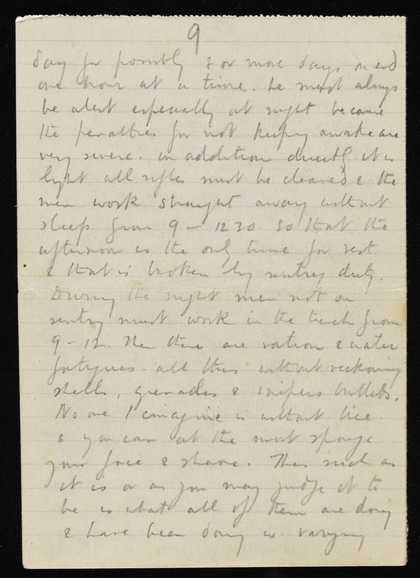 9
day for possibly 8 or more days on end
one hour at a time. he must always
be alert especially at night because
the penalties for not keeping awake are
very severe. in addition directly it is
light all rifles must be cleaned & the
men work straight away without
sleep from 9 - 12.30 so that the
afternoon is the only time for rest
& that is broken by sentry duty.
During the night men not on
sentry must work in the trench from
9 - 12. then there are ration & water
fatigues. all this without reckoning
shells, grenades & snipers bullets.
No one I imagine is without lice
& you can at the most sponge
your face & shave. This such as
it is or as you may judge it to
be is what all of them are doing
& have been doing in varying